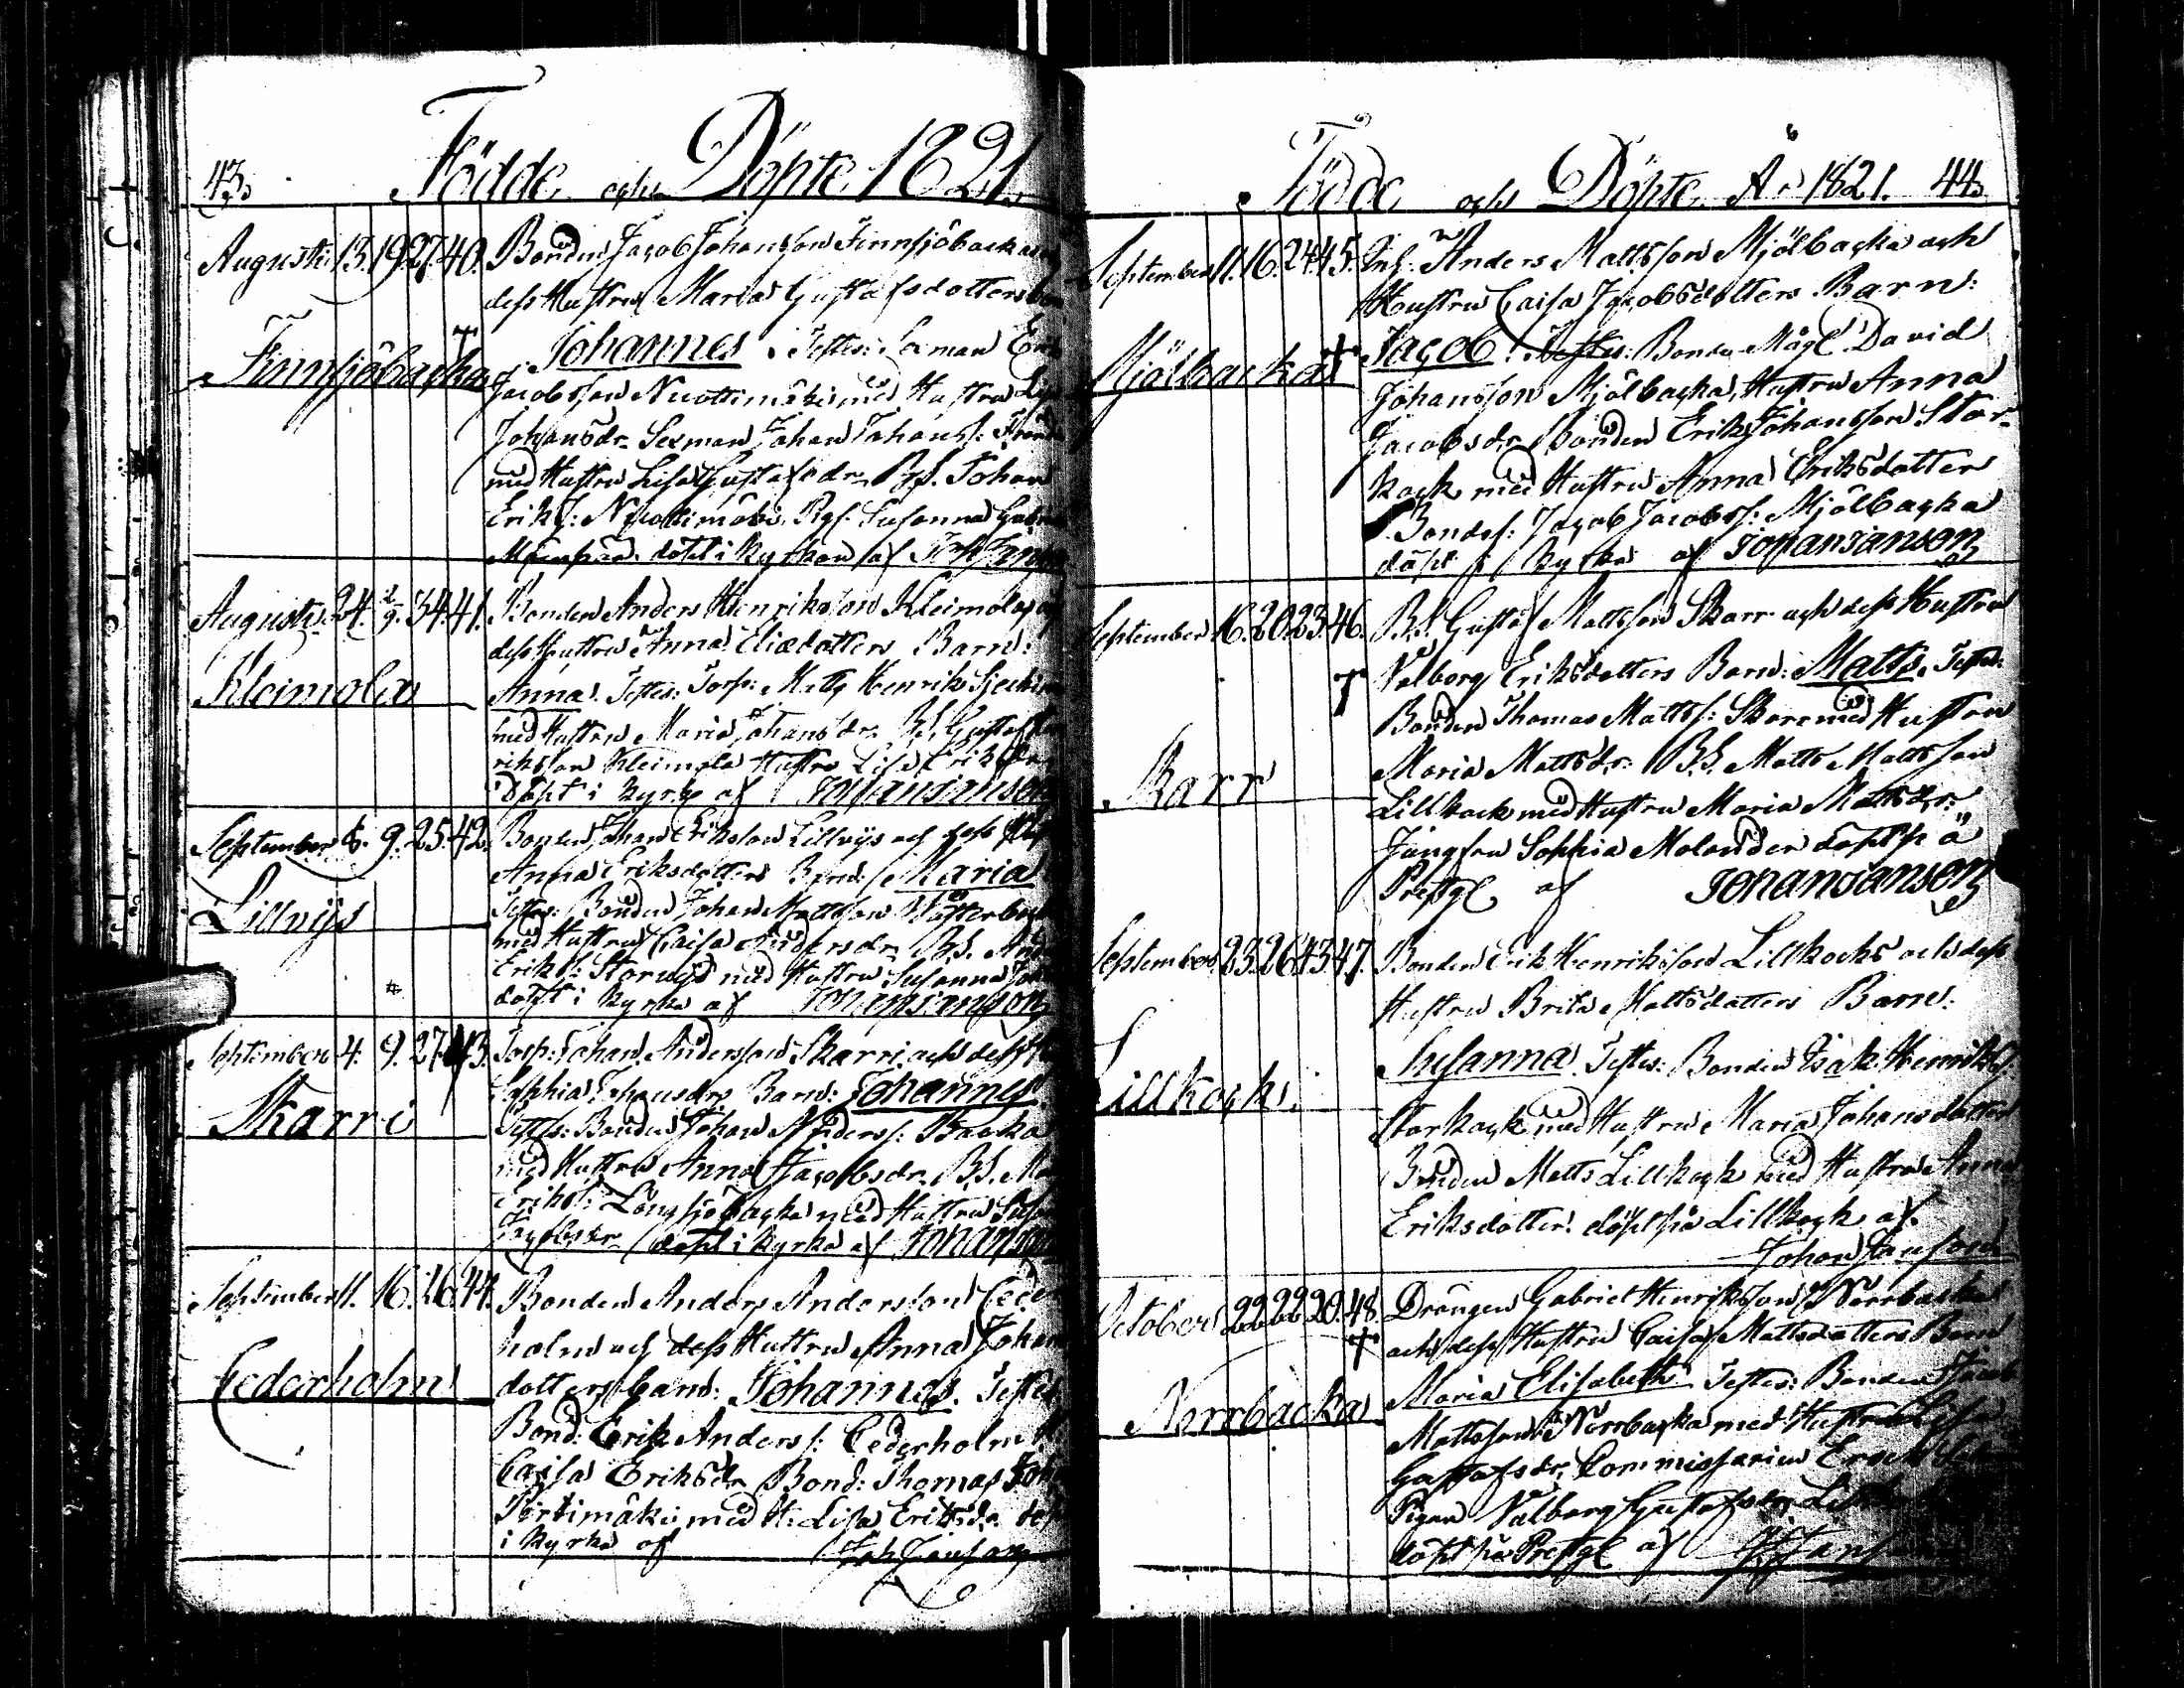 43. Födde och Döpte 1821.
Augusti 13. 19. 27. 40. Bonden Jacob Johansson Finnsjöbacka
dess Hustru Maria Gustafsdotters
Finnsjöbacka Johannes. Testes: Sexman
Jacobsson med Hustru
Johansdr. Sexman Johan Johanss:
med Hustru Lisa Gustafsdr.
Eriks: Susanna
döpt i Kyrkan af
Augusti 24. 2/9. 34. 41. Bonden Anders Henriksson Kleimola
dess Hustru Anna Eliædotters Barn:
Kleimola Anna. Testes: Torp: Matts Henriks
med Hustru Maria Johansdr. B.S. Gustaf
riksson Kleimola Hustru Lisa Eriksdr
Döpt i Kyrk af Johan Janson
September 6. 9. 25. 42. Bonden Johan Eriksson Lillvijs och dess
Anna Eriksdotters Barn: Maria
Lillvijs Testes: Bonden Johan Mattsson
med Hustru Caisa Andersdr. B.S.
Eriks: Storwijs med Hustru Susanna
döpt i Kyrka af Johan Janson
September 4. 9. 27. 43. Torp: Johan Andersson Skarri och dess
Sophia Johansdrs Barn: Johannes
Skarri Testes: Bonden Johan Anders: Backa
med Hustru Anna Jacobsdr. B.S.
Eriks: Långsjöbacka med Hustru
Jacobsdr döpt i Kyrka af Johan
September 11. 16. 26. 44. Bonden Anders Andersson Ceder
holm och dess Hustru Anna Johan
Cederholm dotters barn: Johannes. Testes
Bond: Erik Anders: Cederholm
Caisa Eriksdr Bond: Thomas
Pertimäki med H. Lisa Eriksdr
i Kyrka af Joh Janson
Födde och Döpte År 1821. 44.
September 11. 16. 24. 45. Inh: Anders Mattsson Mjölbacka och
Hustru Caisa Jacobsdotters Barn:
Mjölbacka Jacob. Testes: Bonde Måg: David
Johansson Mjölbacka, Hustru Anna
Jacobsdr Bonden Erik Johansson Stor-
kock med Hustru Anna Eriksdotter
Bondes: Jacob Jacobs: Mjölbacka
döpt i Kyrka af Johan Janson
September 16. 20. 23. 46. B.S. Gustaf Mattsson Skarr och dess Hustru
Valborg Eriksdotters Barn: Matts. Testes:
Bonden Thomas Matts: Skarr med Hustru
Skarr Maria Mattsdr: B.S. Matts Mattsson
Lillkock med Hustru Maria Mattsdr:
Jungfru Sophia Molander döpt på
Prestg: af Johan Janson
September 23. 26. 43. 47. Bonden Erik Henriksson Lillkocks och dess
Hustru Brita Mattsdotters Barn:
Lillkock. Susanna. Testes: Bonden Isak Henriks:
Storkock med Hustru Maria Johansdotter
Bonden Matts Lillkock med Hustru Anna
Eriksdotter döpt på Lillkock af
Johan Janson
October 22. 22. 20. 48. Drängen Gabriel Henriksson Norrbacka
och dess Hustru Caisa Mattsdotters Barn
Norrbacka Maria Elisabeth Testes: Bonden Jacob
Mattsson Norrbacka med Hustru Lisa
Gustafsdr, Commissarien
Pigan Valborg Gustafsdr
döpt på Prestg: af